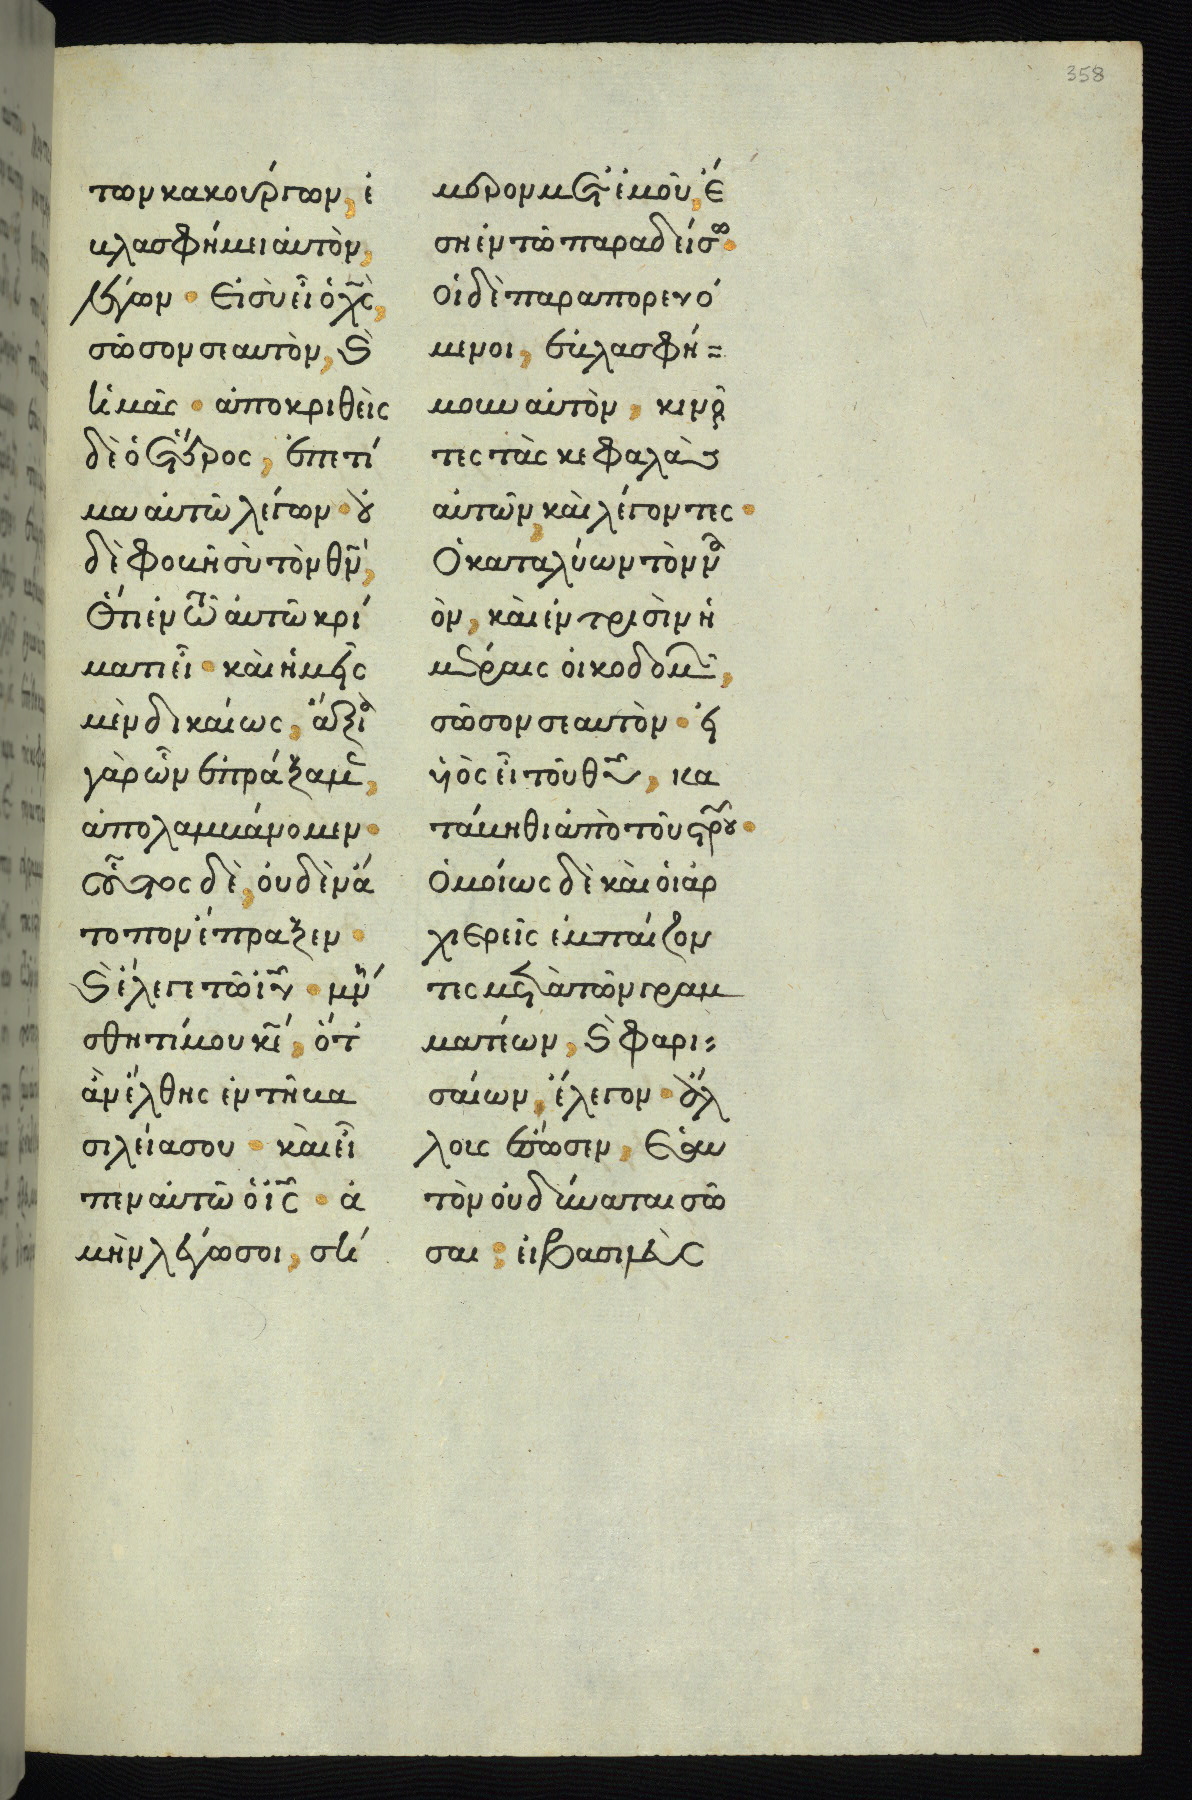 358
των κακούργων, ἐ
βλασφήμει αὐτὸν,
λέγων · Εἰ σὺ εἶ ὁ χς̄,
σῶσον σεαυτὸν, κ̀
ἡμᾶς · ἀποκριθεὶς
δὲ ὁ ἕτερος, ἐπετί
μα αὐτῶ λέγων · οὐ
δὲ φοβῆ σὺ τὸν θν̄,
Ὅτι ἐν τῶ αὐτῶ κρί
ματι εἶ · καὶ ἡμεῖς
μὲν δικαίως, ἄξια
γὰρ ὧν ἐπράξαμεν,
ἀπολαμβάνομεν ·
οὗτος δὲ, οὐδὲν ἄ
τοπον ἔπραξεν ·
κ̀ ἔλεγε τῶ ιῡ · μνή
σθητί μου κε̄, ὅτ
ἂν ἔλθης ἐν τῆ βα
σιλεία σου · καὶ εἶ
πεν αὐτῶ ὁ ις̄ · ἀ
μὴν λέγω σοι, σή
μερον μετ' ἐμοῦ, ἔ
ση ἐν τῶ παραδείσω ·
Οἱ δὲ παραπορευό
μενοι, ἐβλασφή=
μουν αὐτὸν, κινοῦ
τες τὰς κεφαλὰς
αὐτῶν, καὶ λέγοντες ·
Ὁ καταλύων τὸν να
ὸν, καὶ ἐν τρισὶν ἡ
μέραις οἰκοδομῶν,
σῶσον σεαυτὸν · εἰ
υἱὸς εἶ τοῦ θῡ, κα
τάβηθι ἀπὸ τοῦ στρου ·
Ὁμοίως δὲ καὶ οἱ ἀρ
χιερεῖς ἐμπαίζον
τες μετὰ τῶν γραμ
ματέων, κ̀ φαρι=
σαίων, ἔλεγον · ἄλ
λους ἔσωσεν, Ἑαυ
τὸν οὐ δύναται σῶ
σαι ; εἰ βασιλεὺς